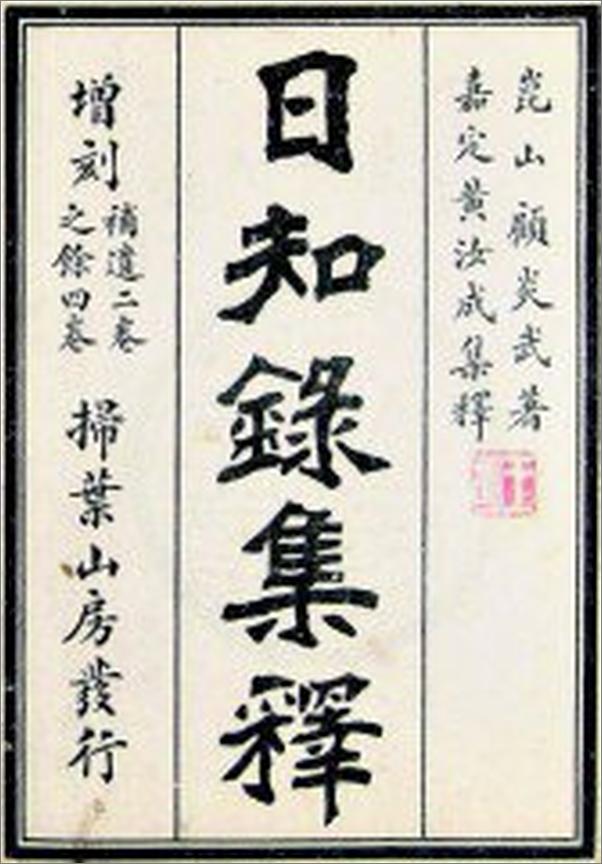 崑山顧炎武著
嘉定黃汝成集釋
日知錄集釋
增刻
補遺二卷
之餘四卷
掃葉山房發行